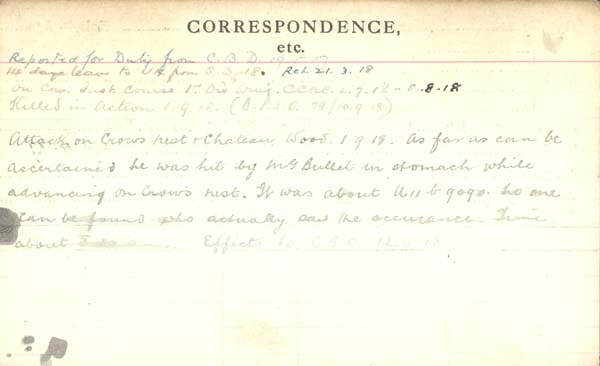 CORRESPONDENCE,
etc.
Reported for Duty from C.B.D.
14 days leave to U.K from 5.3.18. Ret. 21.3.18
on Course 1st Div Wing. 2.7.18 - 5.8.18
Killed in Action 1.9.18.
Attack on Crows nest & Chateau Wood. 1 9 18. As far as can be
ascertained he was hit by MG Bullet in stomach while
advancing on Crow's nest. It was about U 11 b 9090. No one
can be found who actually saw the occurance. Time
about Effects to C B D 12.9.18